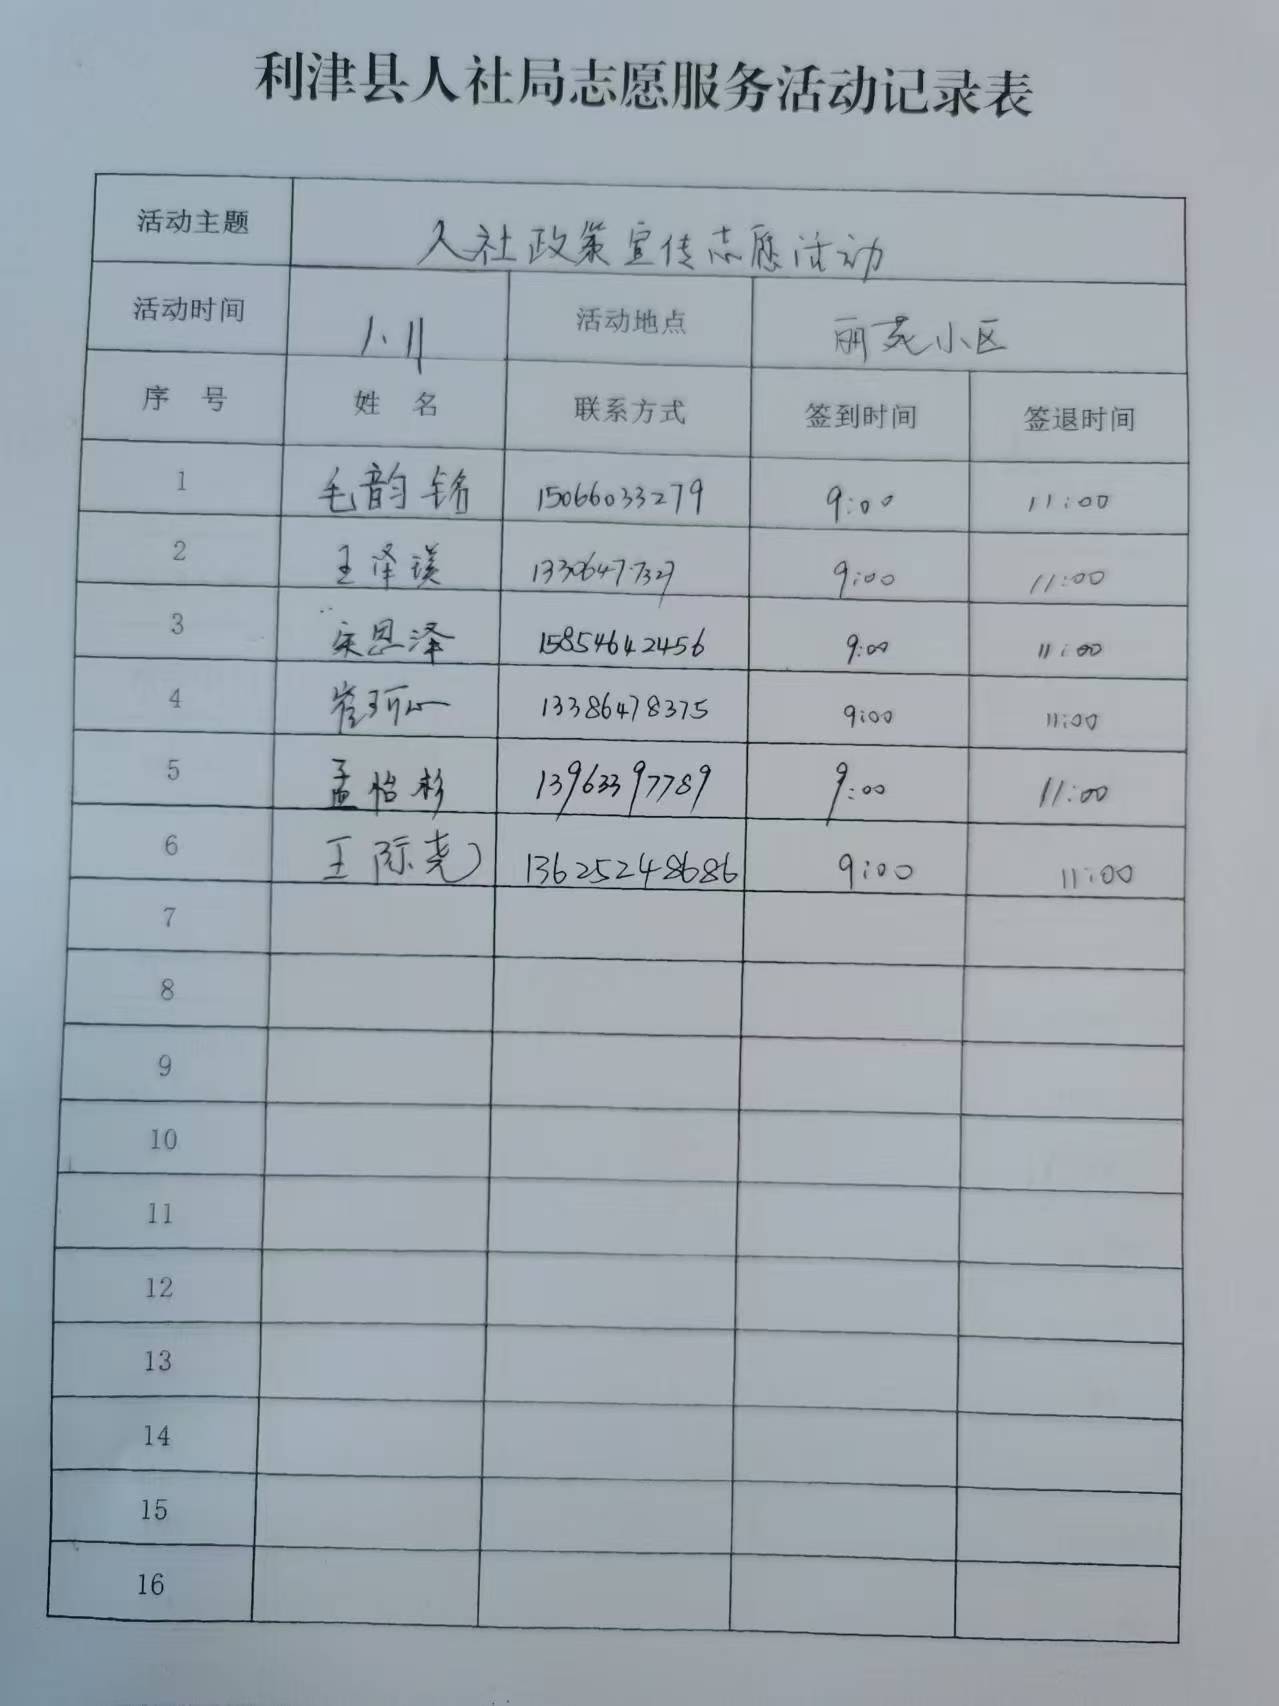 利津县人社局志愿服务活动记录表
活动主题 人社政策宣传志愿活动
活动时间 1.11 活动地点 丽苑小区
序 号 姓 名 联系方式 签到时间 签退时间
1 毛韵铭 15066033279 9:00 11:00
2 王泽瑛 9:00 11:00
3 宋恩泽 15854642456 9:00 11:00
4 崔珂心 13386478375 9:00 11:00
5 孟怡杉 13963397789 9:00 11:00
6 王际尧 13625248686 9:00 11:00
7
8
9
10
11
12
13
14
15
16